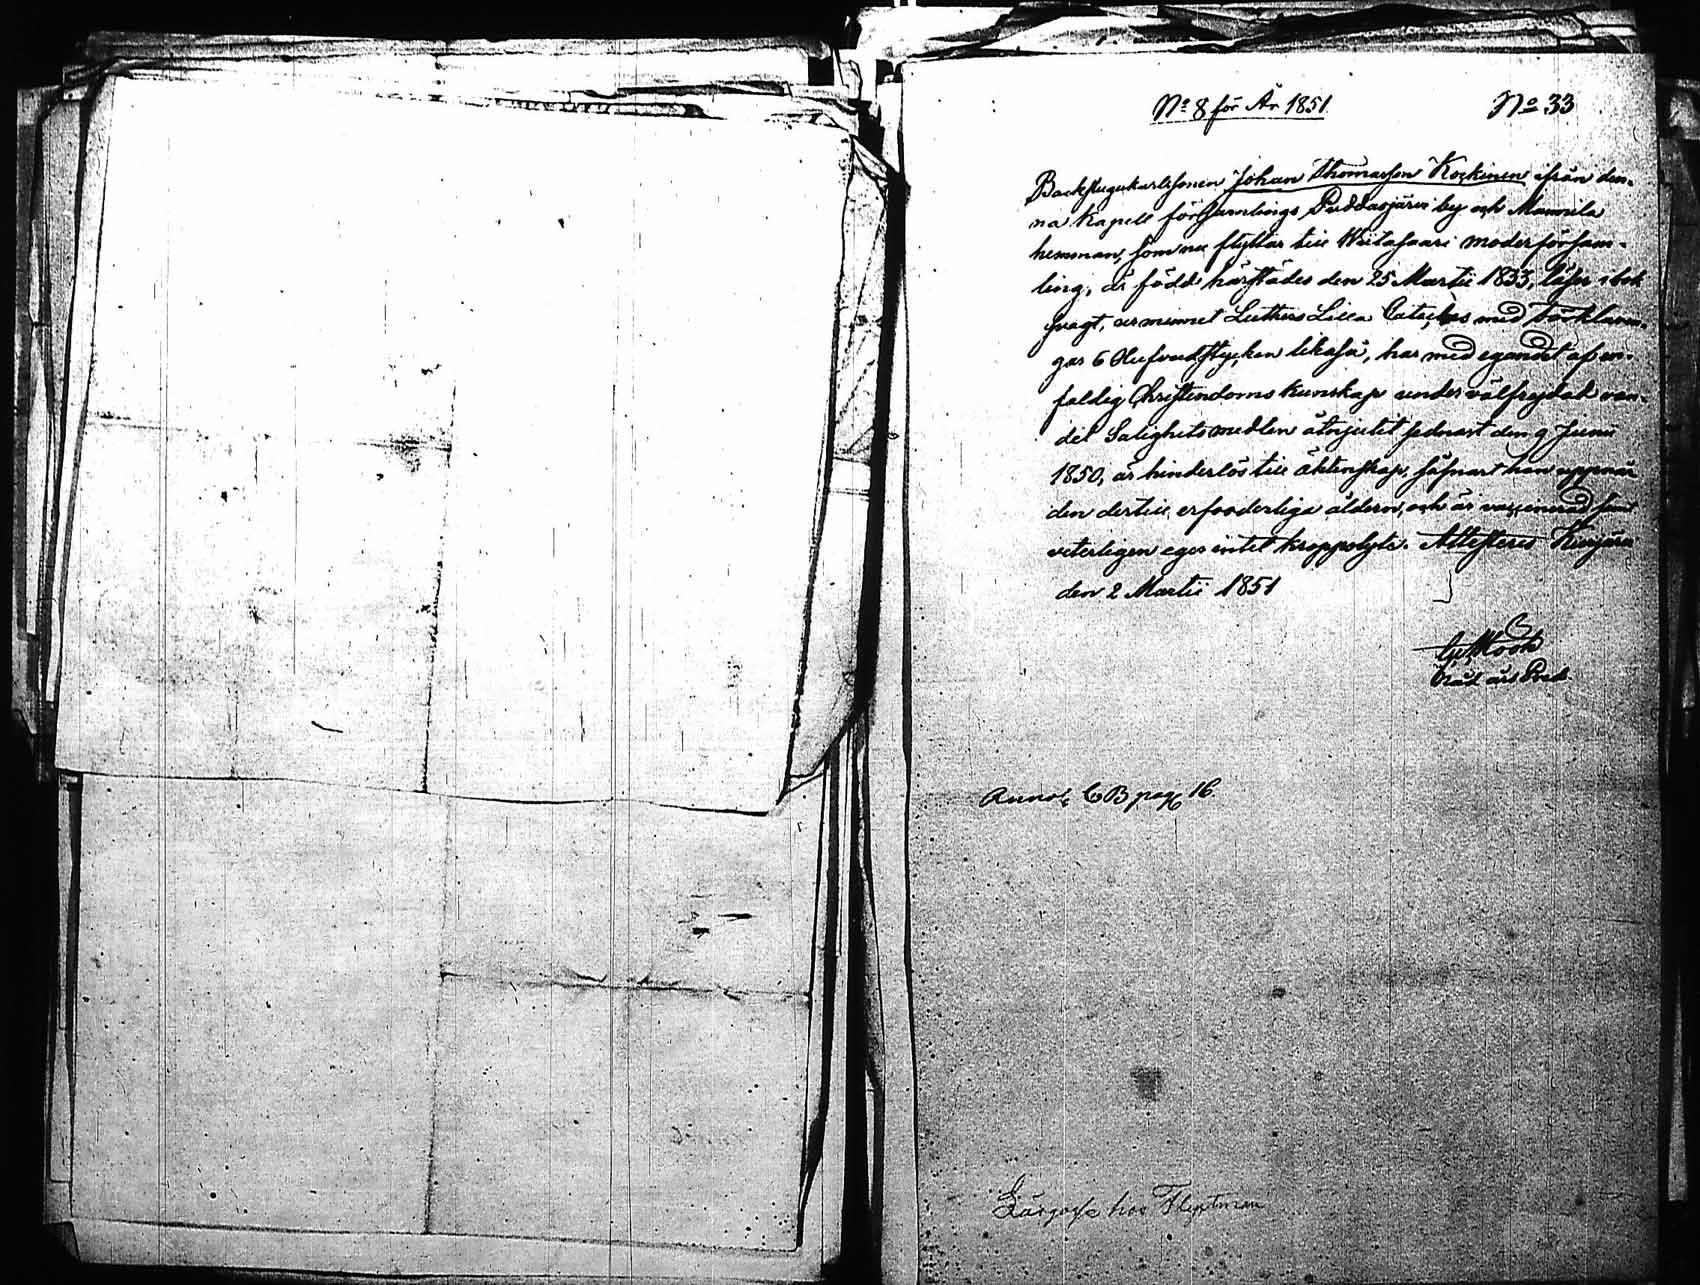 No 8 för År 1851. No 33
Backstugukarlssonen Johan Thomasson Kockinen ifrån den-
na Kapell församlings Puddasjärvi by och Mannila
hemman, som nu flyttar till Wiitasaari moderförsam-
ling, är född härstädes den 25 Martii 1833, läser i bok
svagt, ur minnet Luthers Lilla Cateches med Förklarin-
gar & Hufvudstycken likaså, har med egandet af en-
faldig Christendoms kunskap under välfrejdad van-
del Salighetsmedlen åtnjutit sednast den 9 Junii
1850, är hinderlös till äktenskap, såsnart han uppnår
den dertill erfoderliga åldern, och är vaccinerad samt
veterligen eger intet kroppslyte. Attesteras Kivijärvi
den 2 Martii 1851
Annot. CB pag 16.
hos